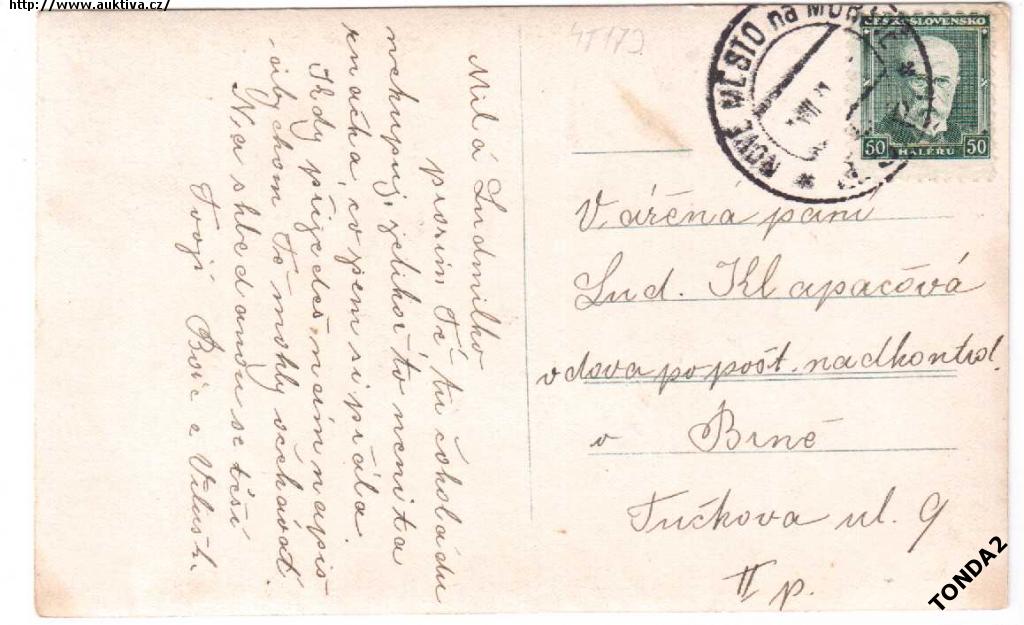 http://www.auktiva.cz/
45179
NOVÉ MĚSTO na MOR
ČESKOSLOVENSKO
50 HALÉŘŮ 50
Milá Ludmilko
prosím Tě tu čokoládu
nekupuj, jelikož to není ta
značka, co jsem si přála.
Kdy přijedeš, nám napiš
abychom Tě mohly očekávat.
Na shledanou se těší
Tvoji
Vážená paní
Lud. Klapačová
vdova po pošt. nadkontrol.
v Brně
Tučkova ul. 9
II p.
TONDA2